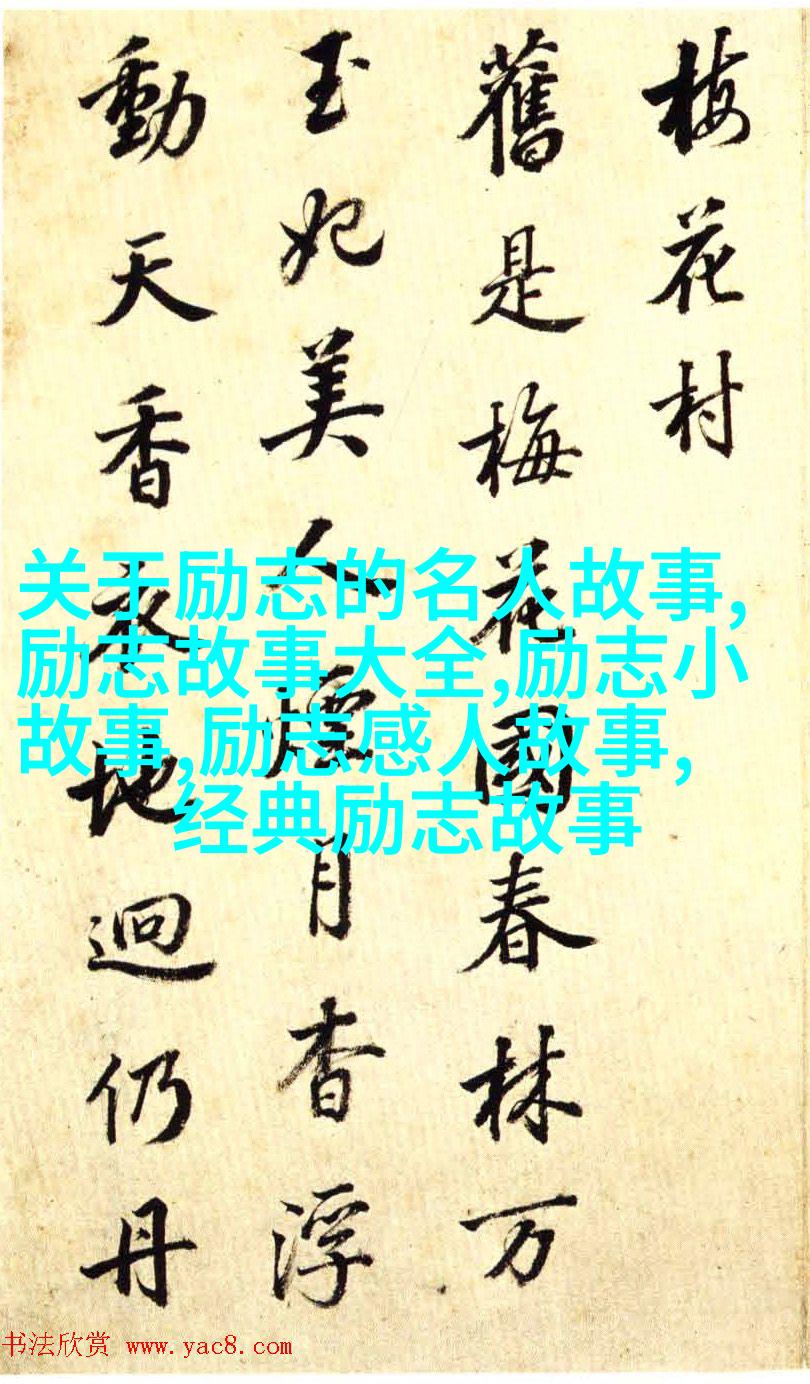 梅花村
舊是梅花國春林万
玉妃美人煙月杳浮
動天香衣地迥仍丹
关于励志的名人故事,
励志故事大全,励志小
故事,励志感人故事,
经典励志故事
书法欣赏 www.yac8.com